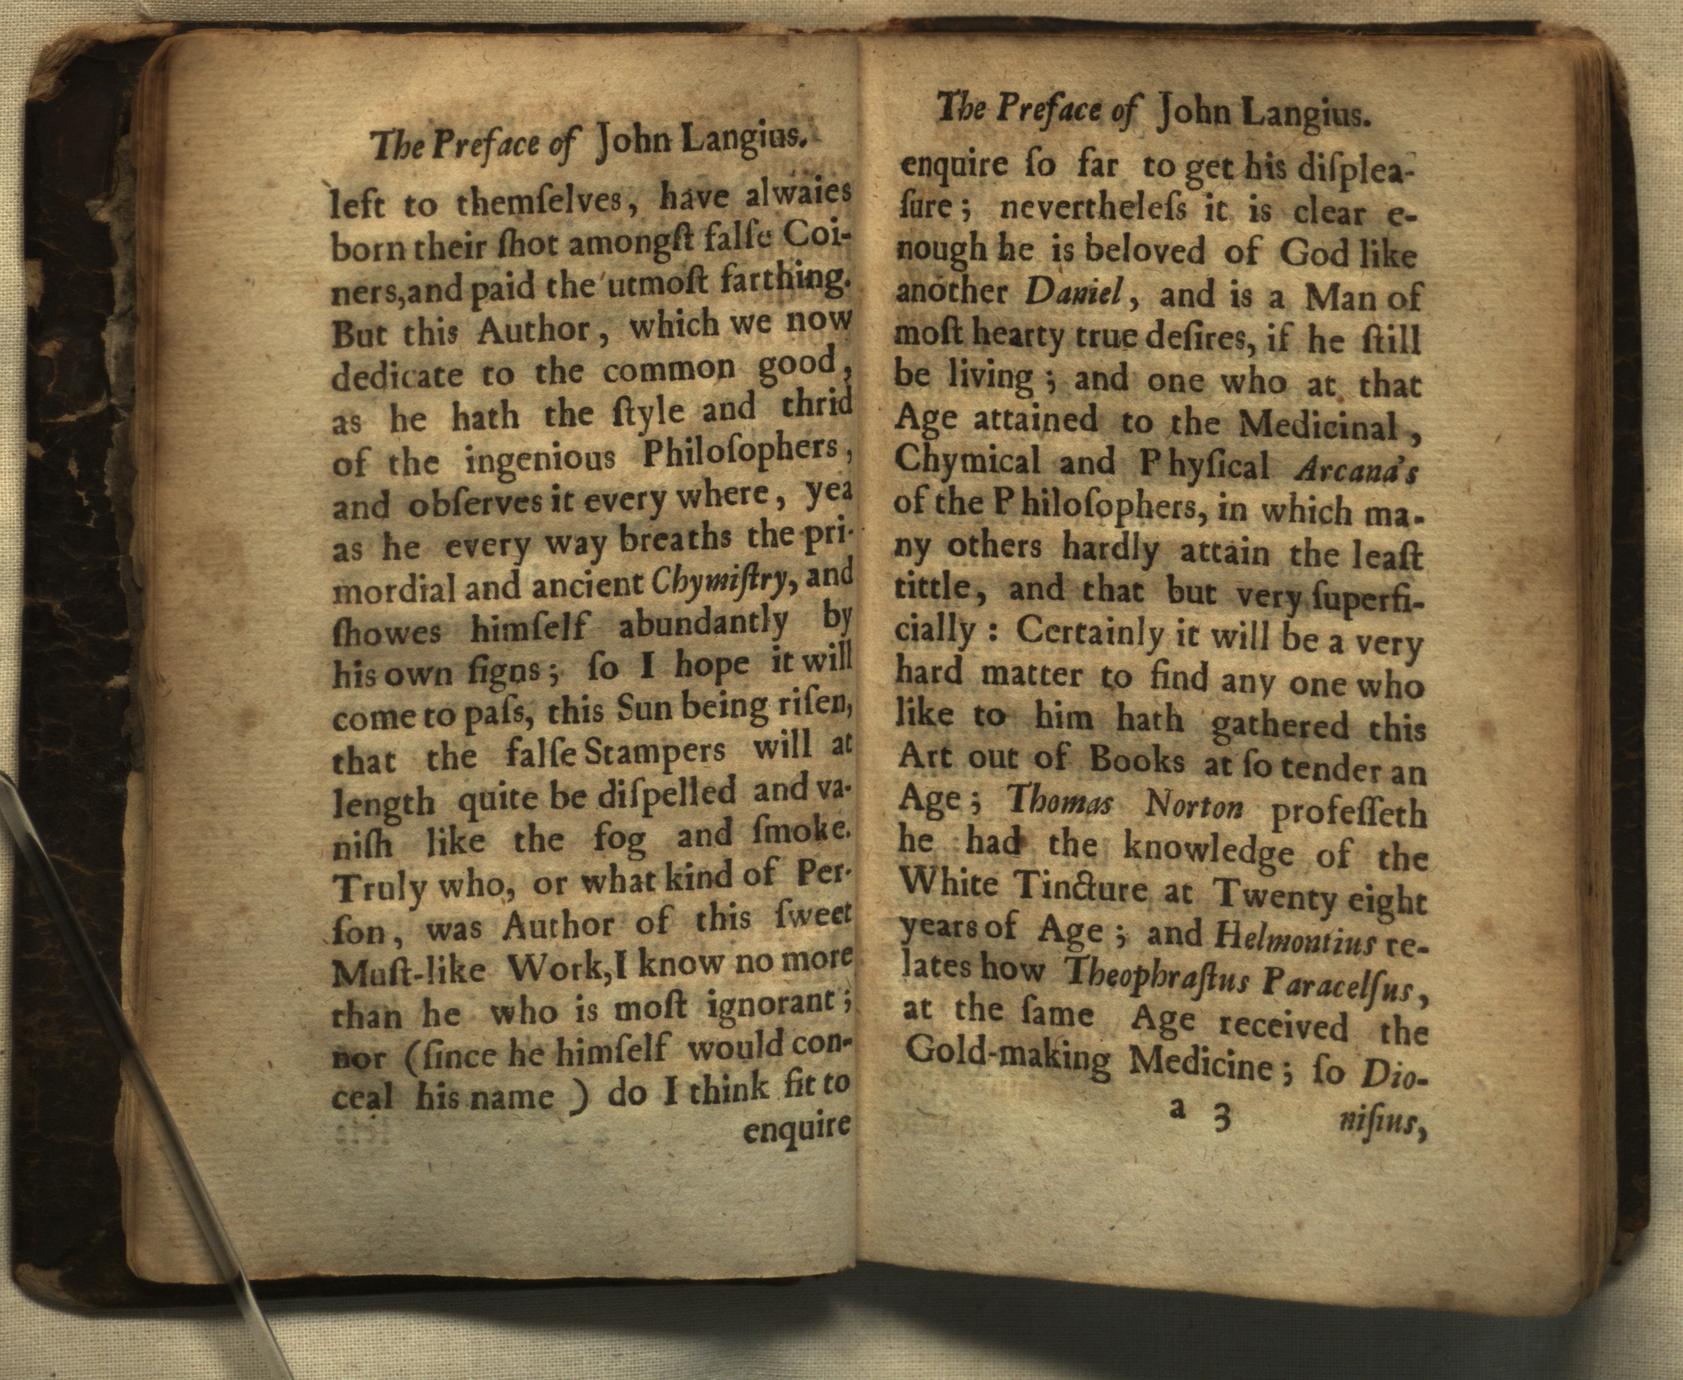 The Preface of John Langius.
left to themſelves, have alwaies
born their ſhot amongſt falſe Coi-
ners,and paid the utmoſt farthing.
But this Author, which we now
dedicate to the common good,
as he hath the ſtyle and thrid
of the ingenious Philoſophers,
and obſerves it every where, yea
as he every way breaths the pri-
mordial and ancient Chymiſtry, and
ſhowes himſelf abundantly by
his own ſigns; ſo I hope it will
come to paſs, this Sun being riſen,
that the falſe Stampers will at
length quite be diſpelled and va-
niſh like the fog and ſmoke.
Truly who, or what kind of Per-
ſon, was Author of this ſweet
Muſt-like Work,I know no more
than he who is moſt ignorant;
nor (ſince he himſelf would con-
ceal his name ) do I think fit to
enquire
The Preface of John Langius.
enquire ſo far to get his diſplea-
ſure; nevertheleſs it is clear e-
nough he is beloved of God like
another Daniel, and is a Man of
moſt hearty true deſires, if he ſtill
be living; and one who at that
Age attained to the Medicinal,
Chymical and Phyſical Arcana's
of the Philoſophers, in which ma-
ny others hardly attain the leaſt
tittle, and that but very ſuperfi-
cially : Certainly it will be a very
hard matter to find any one who
like to him hath gathered this
Art out of Books at ſo tender an
Age; Thomas Norton profeſſeth
he had the knowledge of the
White Tincture at Twenty eight
years of Age; and Helmontius re-
lates how Theophraſtus Paracelſus,
at the ſame Age received the
Gold-making Medicine; ſo Dio-
a 3 niſius,